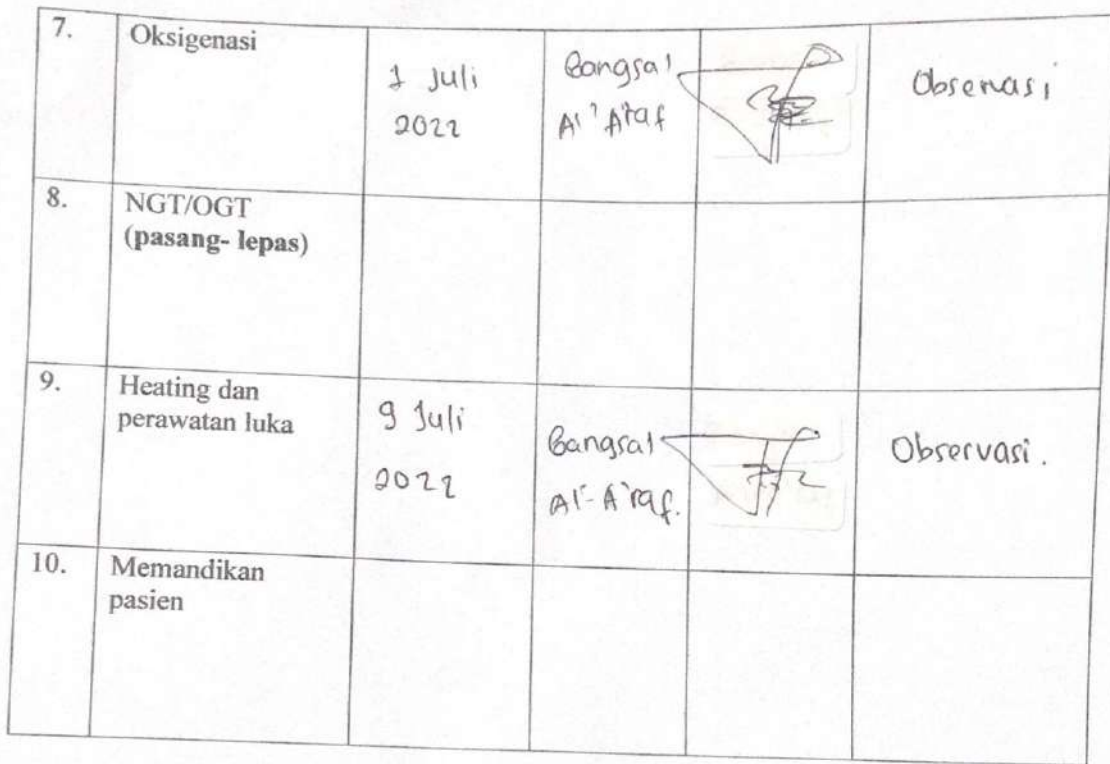 7.
Oksigenasi
1 Juli
2022
Bangsal
Al'Araf
Observasi
8.
NGT/OGT
(pasang- lepas)
9.
Heating dan
perawatan luka
9 Juli
2022
Bangsal
Al-A'raf.
Observasi.
10.
Memandikan
pasien